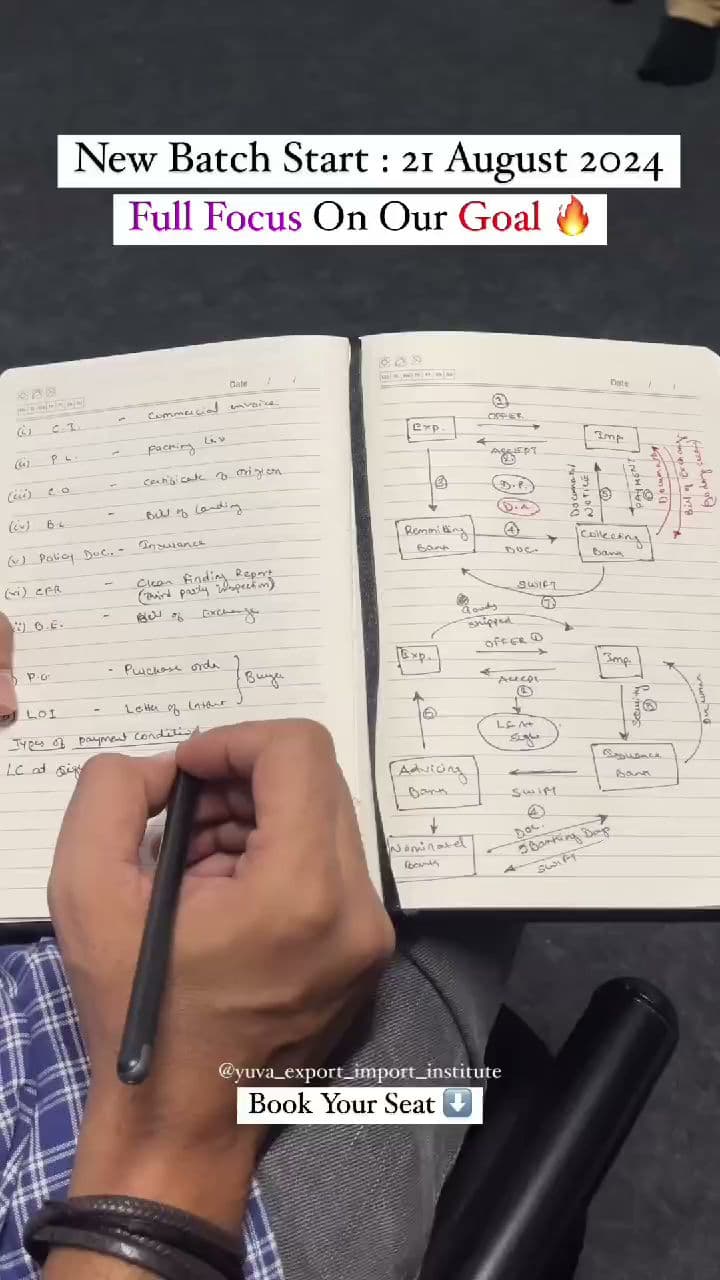 New Batch Start : 21 August 2024
Full Focus On Our Goal 🔥
Date / /
(i) C.I. - Commercial invoice
(ii) P.L. - Packing List
(iii) C.O - Certificate of origion
(iv) B.L - Bill of Landing
(v) Policy Doc. - Insurance
(vi) CFR - Clean Finding Report
(Third party inspection)
B.E. - Bill of Exchange
P.O. - Purchase order
LOI - Letter of Intent
Buyer
Types of payment condition
LC at sig
Date / /
①
OFFER
Exp.
Imp
ACCEPT
②
③
D.P.
D.A.
DOCUMENT
NOTICE
⑤
PAYMENT
⑥
Documents
Bill of Exchange
Remmiting
Bank
④
DOC.
Collecting
Bank
SWIFT
⑦
Goods
shipped
OFFER ①
Exp.
Imp.
Accept
②
LC At
Sight
Security
③
Document
⑤
Advicing
Bank
SWIFT
④
Issuance
Bank
Nominated
Bank
DOC.
5 Banking Days
SWIFT
@yuva_export_import_institute
Book Your Seat ⬇️